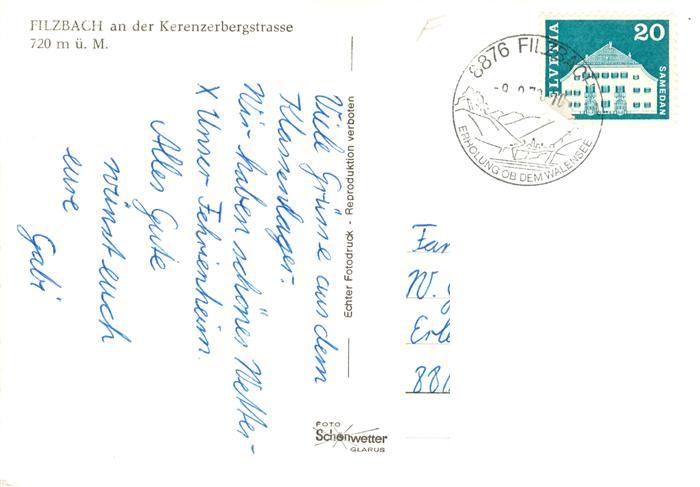 FILZBACH an der Kerenzerbergstrasse
720 m ü. M.
Viele Grüsse aus dem
Klassenlager.
Wir haben schönes Wetter-
X Unser Fehrienheim.
Alles Gute
wünst euch
eure
Gabi
Echter Fotodruck - Reproduktion verboten
FOTO
Schönwetter
GLARUS
F
8876 FILZBACH
ERHOLUNG OB DEM WALENSEE
HELVETIA
20
SAMEDAN
Fam
W.
Erle
881